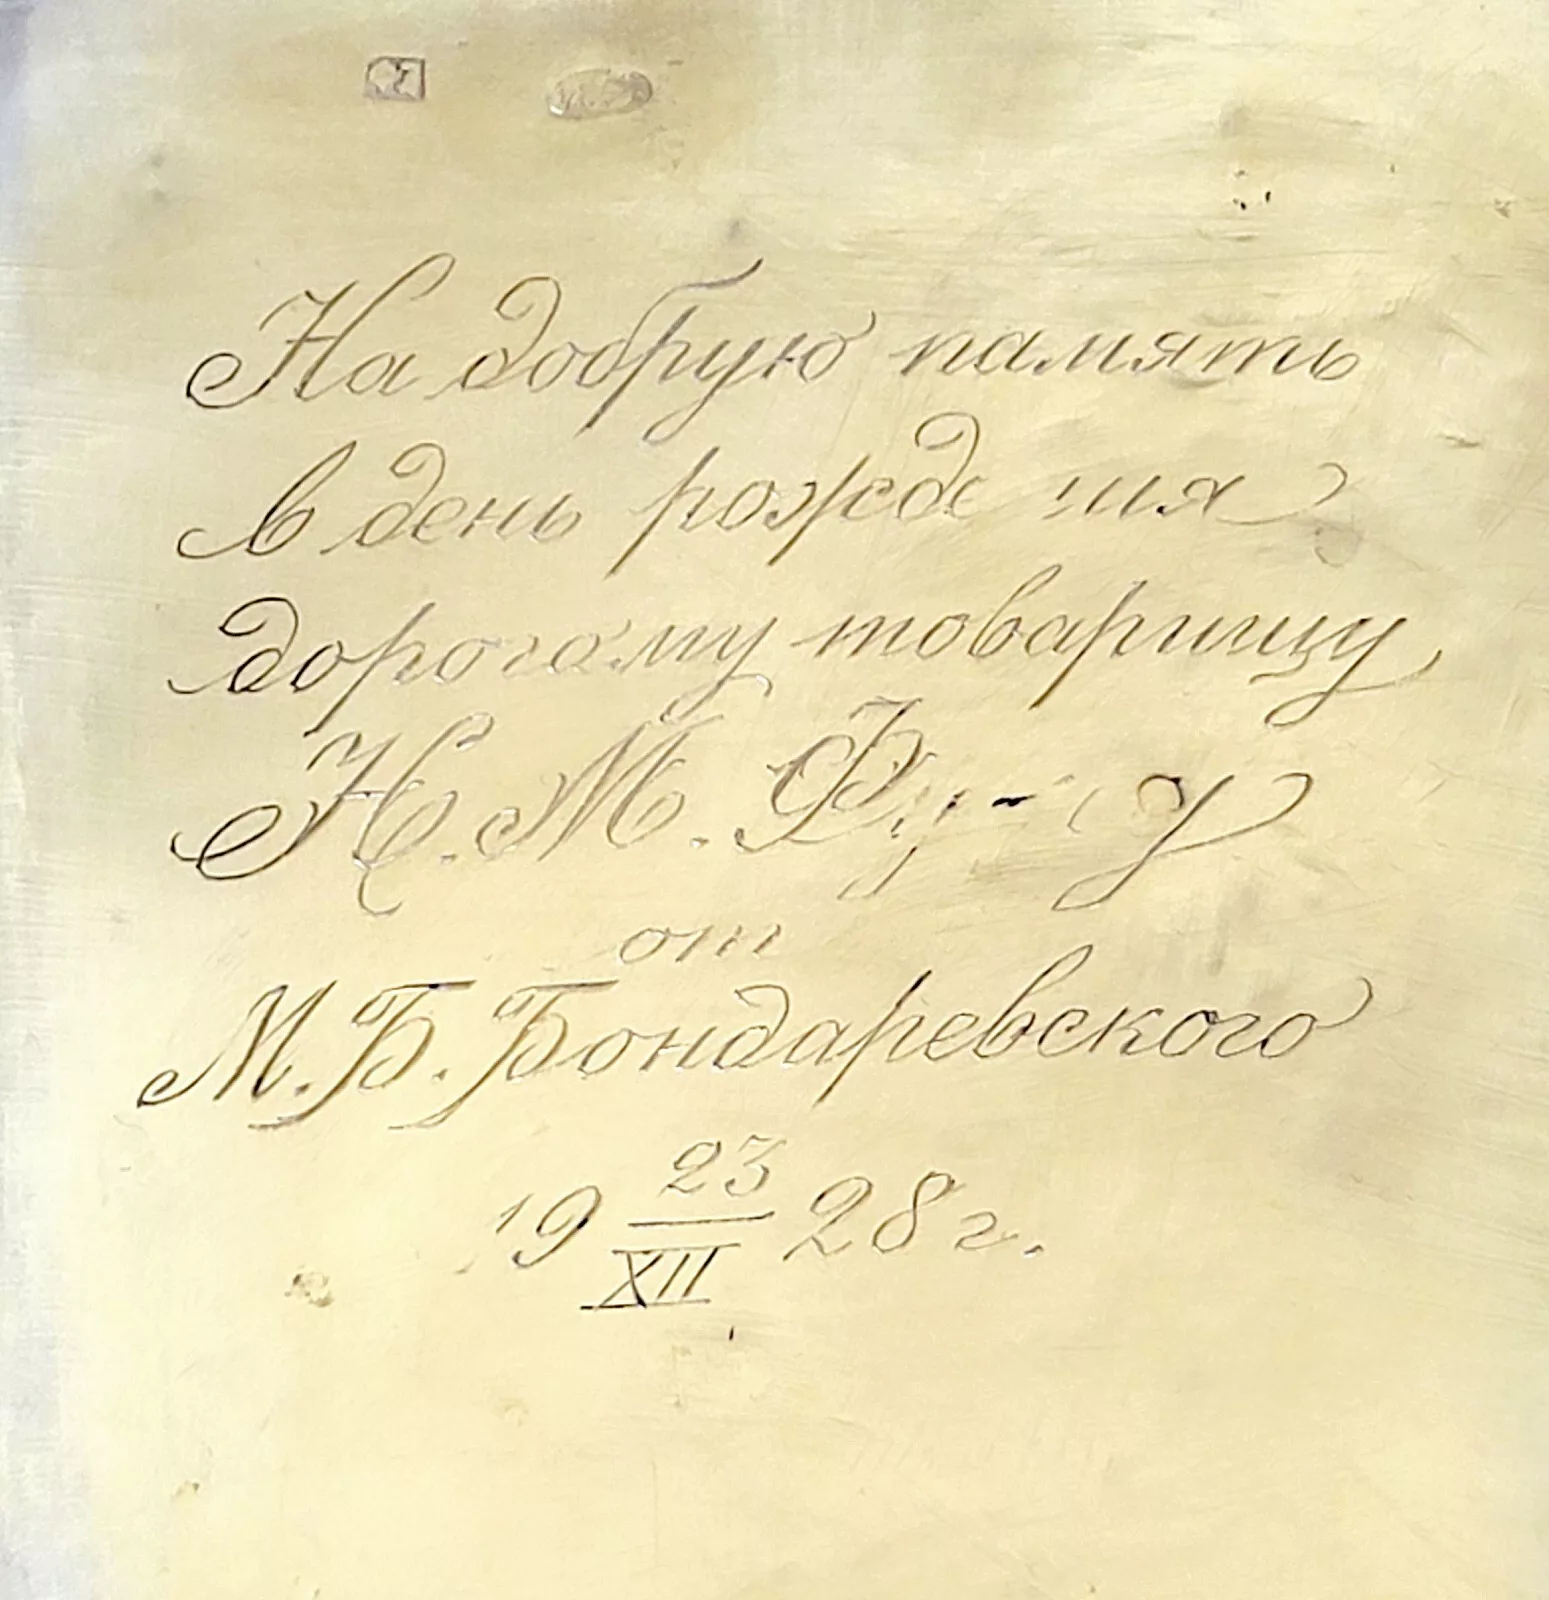 На добрую память
в день рождения
дорогому товарищу
Н. М.
от
М. Б. Бондаревского
19 23/XII 28 г.